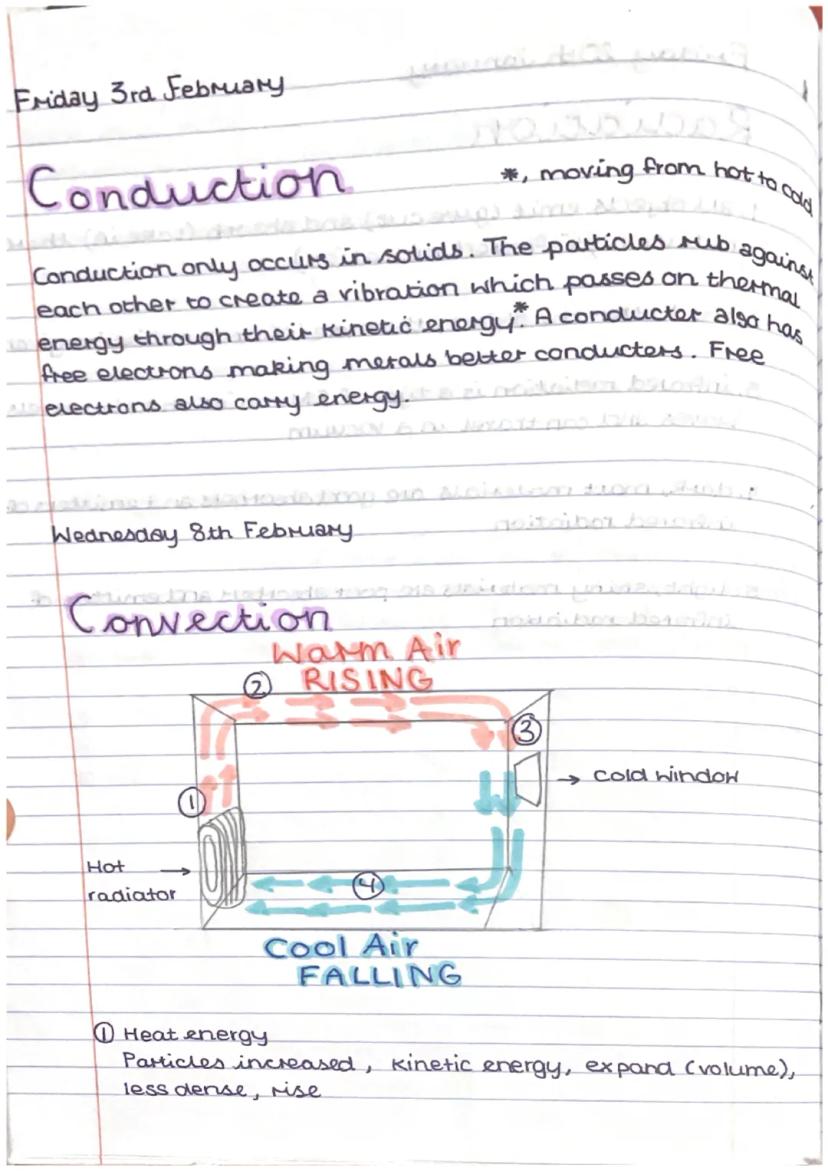 Friday 3rd February
Conduction
*, moving from hot to cold
Conduction only occurs in solids. The particles rub against
each other to create a vibration which passes on thermal
energy through their kinetic energy.* A conducter also has
free electrons making metals better conducters. Free
electrons also carry energy.
Wednesday 8th February
Convection
Warm Air
RISING
②
③
→ cold window
①
Hot →
radiator
④
Cool Air
FALLING
① Heat energy
Particles increased, kinetic energy, expand (volume),
less dense, rise